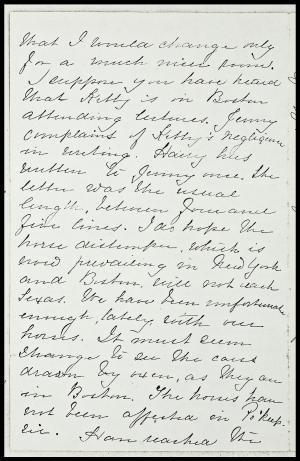 that I would change only
for a much nicer room.
I suppose you have heard
that Kitty is in Boston
attending lectures. Jenny
complains of Kitty's negligence
in writing. Harry has
written to Jenny once. The
letter was the usual
length, between four and
five lines. I do hope the
horse distemper, which is
now prevailing in New York
and Boston, will not reach
Texas. We have been unfortunate
enough, lately, with our
horses. It must seem
strange to see the cars
drawn by oxen, as they are
in Boston. The horses have
not been affected in
sie. I have reached the